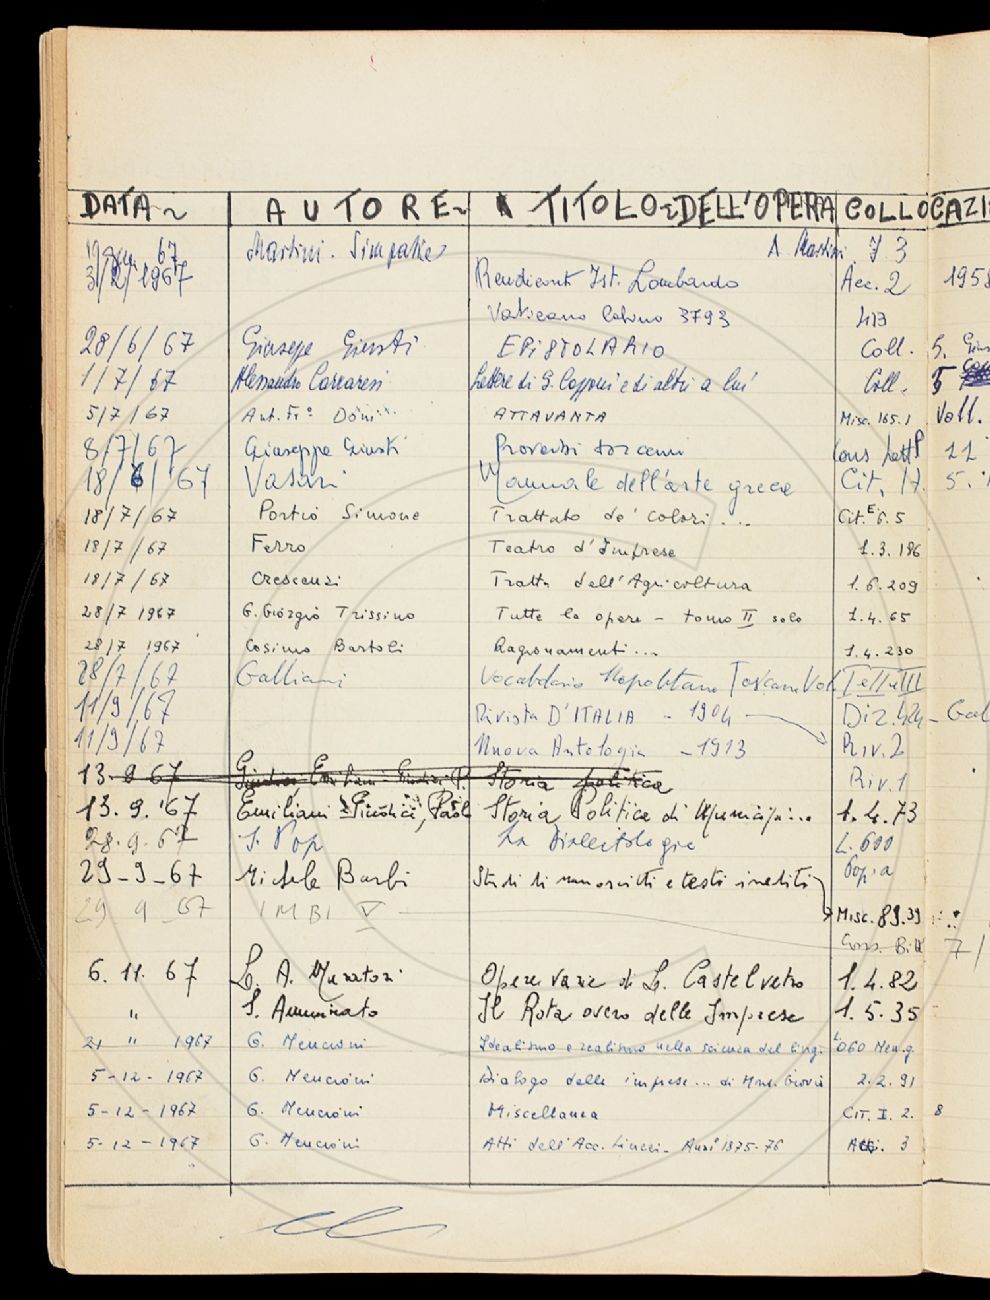 DATA ~ AUTORE ~ TITOLO ~ DELL'OPERA COLLOCAZI
67 Martini. Simpatie A. Martini. I 3
3/2/1967 Rendiconti Ist. Lombardo Acc. 2 1958
Vaticano Latino 3793 413
28/6/67 Giuseppe Giusti EPISTOLARIO Coll. 5. Gius
1/7/67 Alessandro Carraresi Lettere di G. Capponi e di altri a lui Coll. 5
5/7/67 Ant. Fr.º Doni ATTAVANTA Misc. 165.1 Voll.
8/7/67 Giuseppe Giusti Proverbi toscani 11
18/6/67 Vasari Manuale dell'arte greca Cit. 5.
18/7/67 Portio Simone Trattato de' colori ... Cit. E 6.5
18/7/67 Ferro Teatro d'Imprese 1.3.186
18/7/67 Crescenzi Tratta dell'Agricoltura 1.6.209
28/7 1967 G. Giorgio Trissino Tutte le opere - tomo II solo 1.4.65
28/7 1967 Cosimo Bartoli Ragionamenti ... 1.4.230
28/7/67 Galliani Vocabolario Napolitano Toscano Vol. I e II e III
11/9/67 Rivista D'ITALIA - 1904 Diz. - Gal
11/9/67 Nuova Antologia - 1913 Riv. 2
13. 9 67 Storia politica Riv. 1
13.9.'67 Emiliani-Giudici, Paolo Storia Politica di Municipi... 1.4.73
28.9.67 S. Pop La Dialettologie L. 600
29-9-67 Michele Barbi Studi di manoscritti e testi inediti Pop. a
29 9 67 IMBI V Misc. 89.39
7/
6. 11. 67 L. A. Muratori Opere varie di L. Castelvetro 1.4.82
" S. Ammirato Il Rota overo delle Imprese 1.5.35
21 " 1967 G. Mencioni Idealismo e realismo nella scienza del ling. 060
5-12-1967 G. Mencioni Dialogo delle imprese ... di Mons. Giovio 2.2.91
5-12-1967 G. Mencioni Miscellanea CIT. I. 2. 8
5-12-1967 G. Mencioni Atti dell'Acc. Lincei - Anni 1875-76 Atti. 3